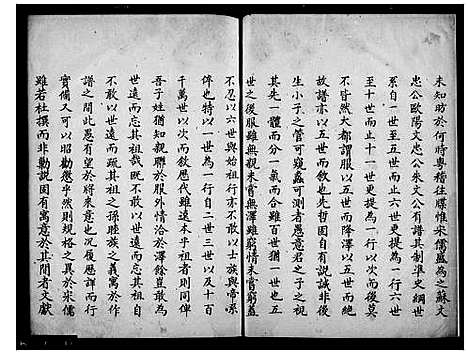 未知昉於何時粤稽往牒惟宋儒盛為之蘇文
忠公歐陽文忠公朱文公有譜其制準史綱世
系自一世至五世而止六世更提為一行六世
至十世而止十一世更提為一行以次而後莫
不皆然大都謂服以五世而降澤以五世而絕
故譜亦以五世而也先哲固自有說誠非後
生小子之管可窺蠡可測者愚意君之子之視
其先一體而分一氣而感自吾一世以至百世
世之後服雖無親未嘗無澤雖窮情未嘗窮蓋
不忍以六世與始祖行亦不敢以士族與帝系
侔也特以一世為一行自二世三世以及十百
千萬世以次而敘歷代雖遠本乎祖者則同俾
吾子姓猶知親聯於服外情洽於澤餘豈敢為
世遠而忘其祖哉既不以世遠而忘其祖自
不敢以世遠而疏其祖之孫睦族之義寓於作
譜之間此愚有望於將來意也况履歷詳而行
實備又可以昭勸懲乎然則規格之異於宋儒
雖若杜撰而非勦說固有寓意於其間者文獻